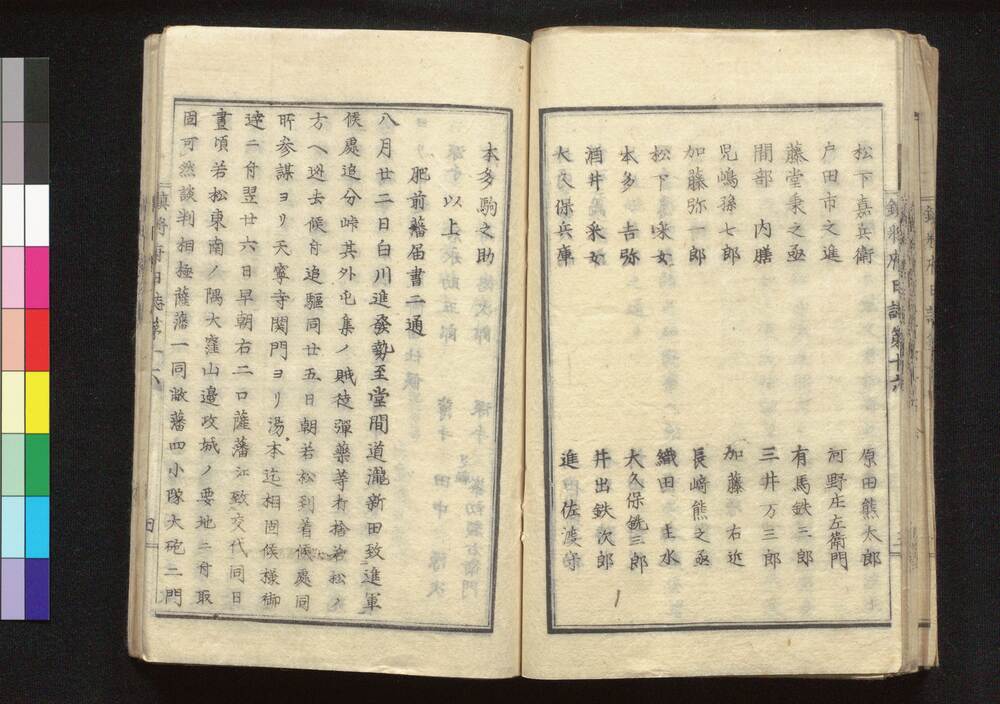 鎮将府日誌第十六
松下嘉兵衛 原田熊太郎
戸田市之進 河野庄左衛門
藤堂秉之亟 有馬鉄三郎
間部内膳 三井万三郎
児嶋孫七郎 加藤右近
加藤弥一郎 長﨑熊之亟
松下采女 織田主水
本多吉弥 大久保銑三郎
酒井采女 井出鉄次郎
大久保兵庫 進佐渡守
本多駒之助
以上
肥前藩届書二通
八月廿二日白川進發勢至堂間道瀧新田致進軍
候處追分峠其外屯集ノ賊徒彈藥等打捨若松ノ
方ヘ迯去候付追駆同廿五日朝若松到着候處同
所参謀ヨリ天寧寺関門ヨリ湯本迄相固候様御
達ニ付翌廿六日早朝右二口薩藩江致交代同日
晝頃若松東南ノ隅大窪山邊攻城ノ要地ニ付取
固可然談判相極薩藩一同敝藩四小隊大砲二門
鎮将府日誌第十六 四